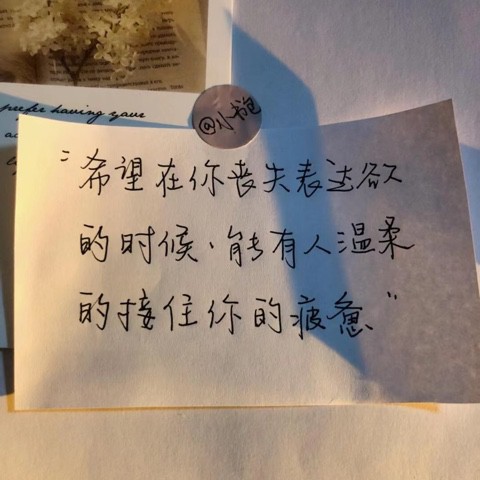 prefer having your
@小抱
"希望在你丧失表达欲
的时候、能有人温柔
的接住你的疲惫"